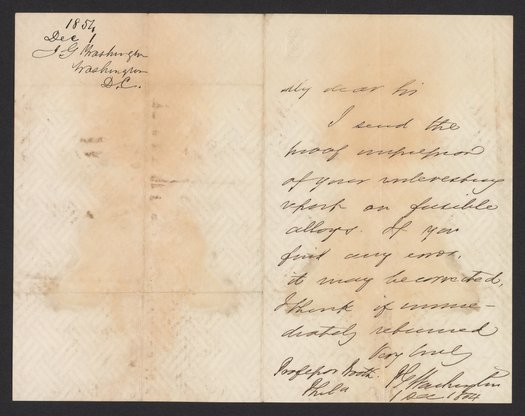 1854
Dec 1
J G Washington
Washington
D.C.
My dear Sir
I send the
proof impression
of your interesting
report on fusible
alloys. If you
find any error,
it may be corrected,
I think if imme-
diately returned
Very truly
P G Washington
1 Dec 1854
Professor Booth
Phila